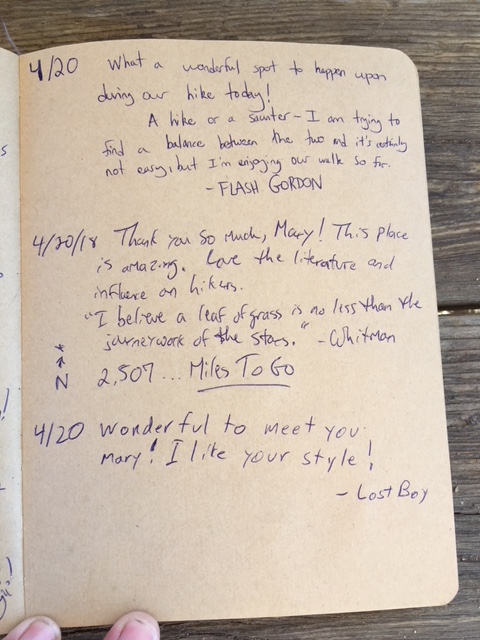 4/20 What a wonderful spot to happen upon
during our hike today!
A hike or a saunter - I am trying to
find a balance between the two and it's certainly
not easy, but I'm enjoying our walk so far.
- FLASH GORDON
4/20/18 Thank you so much, Mary! This place
is amazing. Love the literature and
influence on hikers.
"I believe a leaf of grass is no less than the
journeywork of the stars." - Whitman
N
2,507... Miles To Go
4/20 Wonderful to meet you
Mary! I like your style!
- Lost Boy